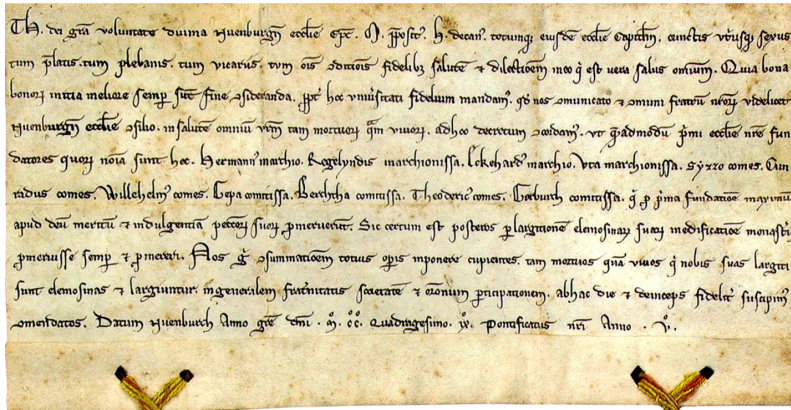 Th. dei grā voluntate divina Nuenburgn̄ eccl̄ie ep̄c. M. p̄posit᷒. h. decan᷒. totumq; eiusdē eccl̄ie capitl̄m. cunctis utri᷒sq; sexus
tum p̄latis. tum plebanis. tum vicariis. tum oīs ꝯditiōis fidelib; salutē ⁊ dilectiōem in eo q̇ est vera salus omīum. Quia bona
bonoꝝ initia meliore semp̱ sūt fine ꝯsideranda. p̱pt᷒ hoc univ᷒sitati fidelium mandam᷒. qd̄ nos ꝯmunicato ⁊ omuni fratrū nr̄oꝝ videlicet
Nuenburgn̄ eccl̄ie ꝯsilio. in salutē omniū vr̄m tam mortuoꝝ q̄m vivoꝝ. ad hoc decretum ꝯcedam᷒. ut q̄admodū p̄mi eccl̄ie nr̄e fun
datores quoꝝ noīa sunt hec. Hermann᷒ marchio. Regelyndis marchionissa. Eckehard᷒ marchio. Uta marchionissa. Syzzo comes. Cun
radus comes. Willehelm᷒ comes. Gepa comitissa. Berchtha comitissa. Theoderic᷒ comes. Gerburch comitissa. q̇ ꝓ p̄ma fundatiōe maximū
apud deū meritū ⁊ indulgentiā peccōꝝ suoꝝ ꝓmeruerūt. Sic certum est posteros ꝑ largitionē elemosinaꝝ suaꝝ in edificatiōe monast᷒ii
ꝓmeruisse semp̱ ⁊ ꝓmereri. Nos g̊ ꝯsummatiōem totius opis inponere cupientes. tam mortuos quā vivos q̇ nobis suas largiti
sunt elemosinas ⁊ largiuntur. in generalem frat᷒nitatis societatē ⁊ oronum ꝑticipationem. ab hac die ⁊ deinceps fidelit᷒ suscipim᷒
ꝯmendatos. Datum Nuenburch Anno gr̄e dn̄i . m̊. cc̊. Quadragesimo. ix̊. Pontificatus nr̄i Anno . v̊.